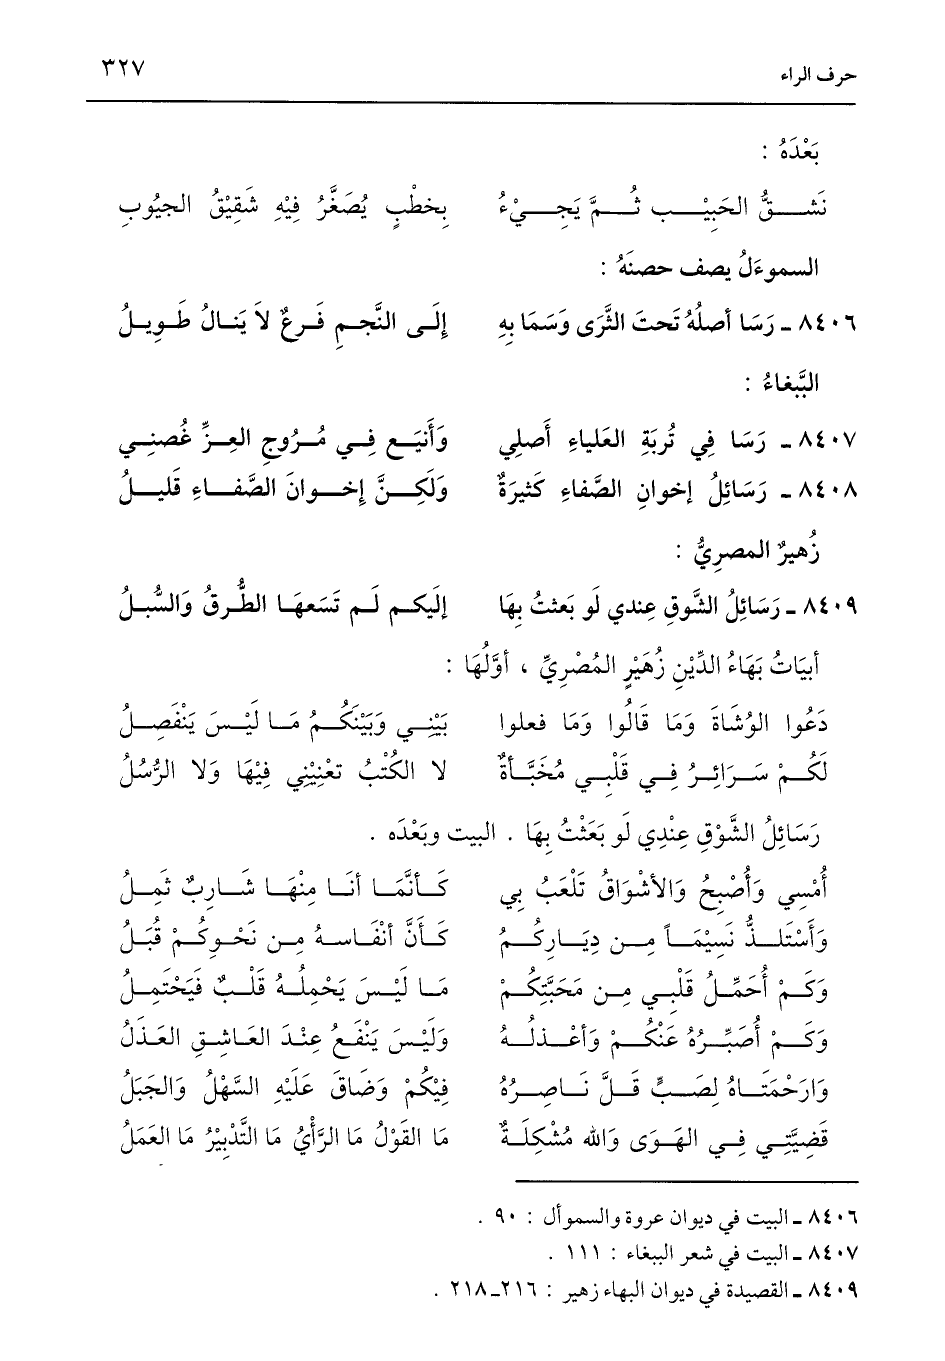 حرف الراء ٣٢٧
بَعْدَهُ :
نَشـــقُّ الحَبِيْـــبِ ثُـــمَّ يَجِـــيْءُ بِخطْبٍ يُصَغَّرُ فِيْهِ شَقِيْقُ الجيُوبِ
السموءَلُ يصف حصنَهُ :
٨٤٠٦ ـ رَسَا أصلهُ تَحتَ الثَّرَى وَسَمَا بِهِ إلَى النَّجـمِ فَـرعٌ لاَ يَنـالُ طَـويـلُ
الببَّغاءُ :
٨٤٠٧ ـ رَسَا فِي تُربَةِ العَلياءِ أَصلِي وَأَنيَـع فِـي مُـرُوجِ العِـزِّ غُصنِـي
٨٤٠٨ ـ رَسَائِلُ إخوانِ الصَّفاءِ كَثيرَةٌ وَلَكِـنَّ إخـوانَ الصَّفـاءِ قَليـلُ
زُهيرٌ المصرِيُّ :
٨٤٠٩ ـ رَسَائِلُ الشَّوقِ عِندي لَو بَعثتُ بِهَا إلَيكـم لَـم تَسَعهَـا الطُّرقُ وَالسُّبلُ
أبيَاتُ بَهَاءُ الدِّيْنِ زُهَيْرٍ المُصْرِيِّ ، أوَّلُهَا :
دَعُوا الوُشَاةَ وَمَا قَالُوا وَمَا فعلوا بَيْنِـي وَبَيْنَكُـمُ مَـا لَيْـسَ يَنْفَصِـلُ
لَكُـمْ سَـرَائِـرُ فِـي قَلْبِـي مُخَبَّـأةٌ لا الكُتْبُ تعْنِيْنِي فِيْهَا وَلا الرُّسُلُ
رَسَائِلُ الشَّوْقِ عِنْدِي لَو بَعَثْتُ بِهَا . البيت وبَعْدَه .
أُمْسِي وَأُصْبِحُ وَالأشْوَاقُ تَلْعَبُ بِي كَـأنَّمَـا أنَـا مِنْهَـا شَـارِبٌ ثَمِـلُ
وَأسْتَلـذُّ نَسِيْمَـاً مِـن دِيَـارِكُـمُ كَـأنَّ أنْفَـاسـهُ مِـن نَحْوكُـمْ قُبَـلُ
وَكَـمْ أُحَمِّـلُ قَلْبِـي مِـن مَحَبَّتِكُـمْ مَـا لَيْـسَ يَحْمِلُـهُ قَلْـبٌ فَيَحْتَمِـلُ
وَكَـمْ أُصَبِّـرُهُ عَنْكُـمْ وَأعْـذلُـهُ وَلَيْـسَ يَنْفَـعُ عِنْـدَ العَـاشِـقِ العَـذَلُ
وَارَحْمَتَـاهُ لِصَـبٍّ قَـلَّ نَـاصِـرُهُ فِيْكُمْ وَضَاقَ عَلَيْهِ السَّهْلُ وَالجَبَلُ
قَضِيَّتِـي فِـي الهَـوَى وَالله مُشْكِلَـةٌ مَا القَوْلُ مَا الرَّأيُ مَا التَّدْبِيْرُ مَا العَمَلُ
٨٤٠٦ ـ البيت في ديوان عروة والسموأل : ٩٠ .
٨٤٠٧ ـ البيت في شعر الببغاء : ١١١ .
٨٤٠٩ ـ القصيدة في ديوان البهاء زهير : ٢١٦ـ٢١٨ .